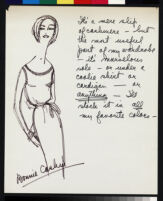 It's a mere slip
of cashmere — but
the most useful
part of my wardrobe
— it's marvelous
solo — or under a
coolie skirt or
cardigan — or
anything — I'd
stock it in all
my favorite colors —
Bonnie Cashin